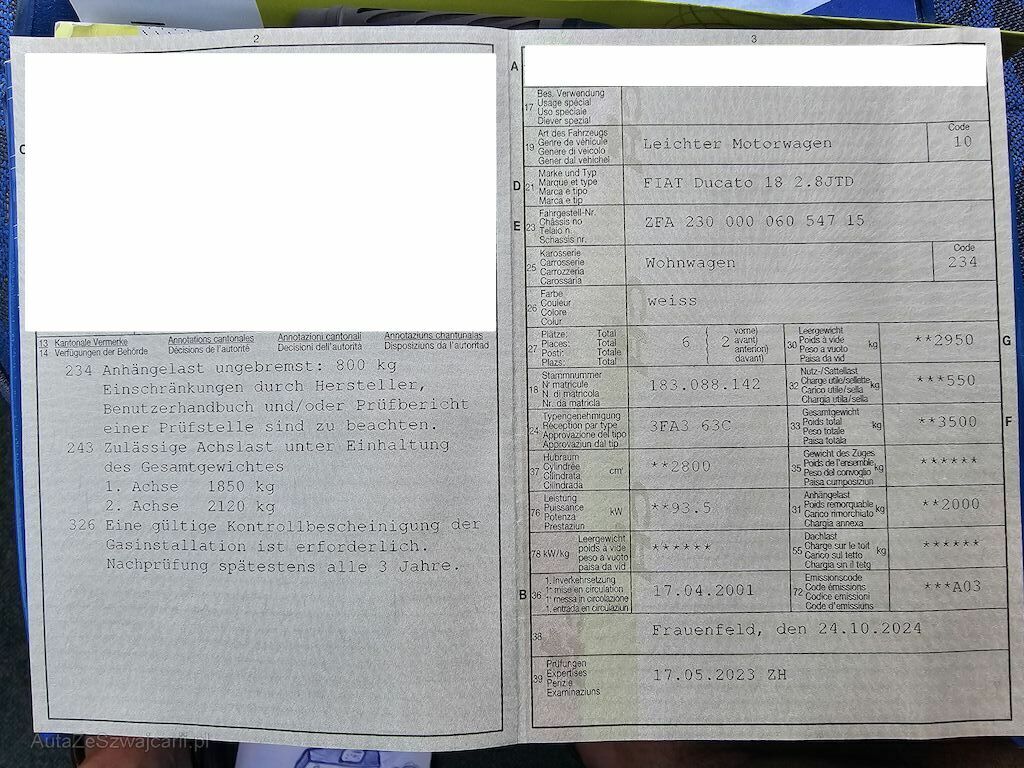 2
C
13 Kantonale Vermerke Annotations cantonales Annotazioni cantonali Annotaziuns chantunalas
14 Verfügungen der Behörde Décisions de l'autorité Decisioni dell'autorità Disposiziuns da l'autoritad
234 Anhängelast ungebremst: 800 kg
Einschränkungen durch Hersteller,
Benutzerhandbuch und/oder Prüfbericht
einer Prüfstelle sind zu beachten.
243 Zulässige Achslast unter Einhaltung
des Gesamtgewichtes
1. Achse 1850 kg
2. Achse 2120 kg
326 Eine gültige Kontrollbescheinigung der
Gasinstallation ist erforderlich.
Nachprüfung spätestens alle 3 Jahre.
3
A
17 Bes. Verwendung
Usage spécial
Uso speciale
Diever spezial
19 Art des Fahrzeugs
Genre de véhicule
Genere di veicolo
Gener dal vehichel
Leichter Motorwagen
Code
10
D 21 Marke und Typ
Marque et type
Marca e tipo
Marca e tip
FIAT Ducato 18 2.8JTD
E 23 Fahrgestell-Nr.
Châssis no
Telaio n.
Schassis nr.
ZFA 230 000 060 547 15
25 Karosserie
Carrosserie
Carrozzeria
Carossaria
Wohnwagen
Code
234
26 Farbe
Couleur
Colore
Colur
weiss
27 Plätze: Total
Places: Total
Posti: Totale
Plazs: Total
6 ( 2 vorne)
avant)
anteriori)
davant)
G 30 Leergewicht
Poids à vide
Peso a vuoto
Paisa da vid
kg
**2950
18 Stammnummer
N° matricule
N. di matricola
Nr. da matricla
183.088.142
32 Nutz-/Sattellast
Charge utile/sellette
Carico utile/sella
Chargia utila/sella
kg
***550
24 Typengenehmigung
Réception par type
Approvazione del tipo
Approvaziun dal tip
3FA3 63C
F 33 Gesamtgewicht
Poids total
Peso totale
Paisa totala
kg
**3500
37 Hubraum
Cylindrée
Cilindrata
Cilindrada
cm³
**2800
35 Gewicht des Zuges
Poids de l'ensemble
Peso del convoglio
Paisa cumposiziun
kg
******
76 Leistung
Puissance
Potenza
Prestaziun
kW
**93.5
31 Anhängelast
Poids remorquable
Carico rimorchiato
Chargia annexa
kg
**2000
78 kW/kg Leergewicht
poids à vide
peso a vuoto
paisa da vid
******
55 Dachlast
Charge sur le toit
Carico sul tetto
Chargia sin il tetg
kg
******
B 36 1. Inverkehrsetzung
1re mise en circulation
1a messa in circolazione
1. entrada en circulaziun
17.04.2001
72 Emissionscode
Code émissions
Codice emissioni
Code d'emissiuns
***A03
38 Frauenfeld, den 24.10.2024
39 Prüfungen
Expertises
Perizie
Examinaziuns
17.05.2023 ZH
AutaZeSzwajcarii.pl